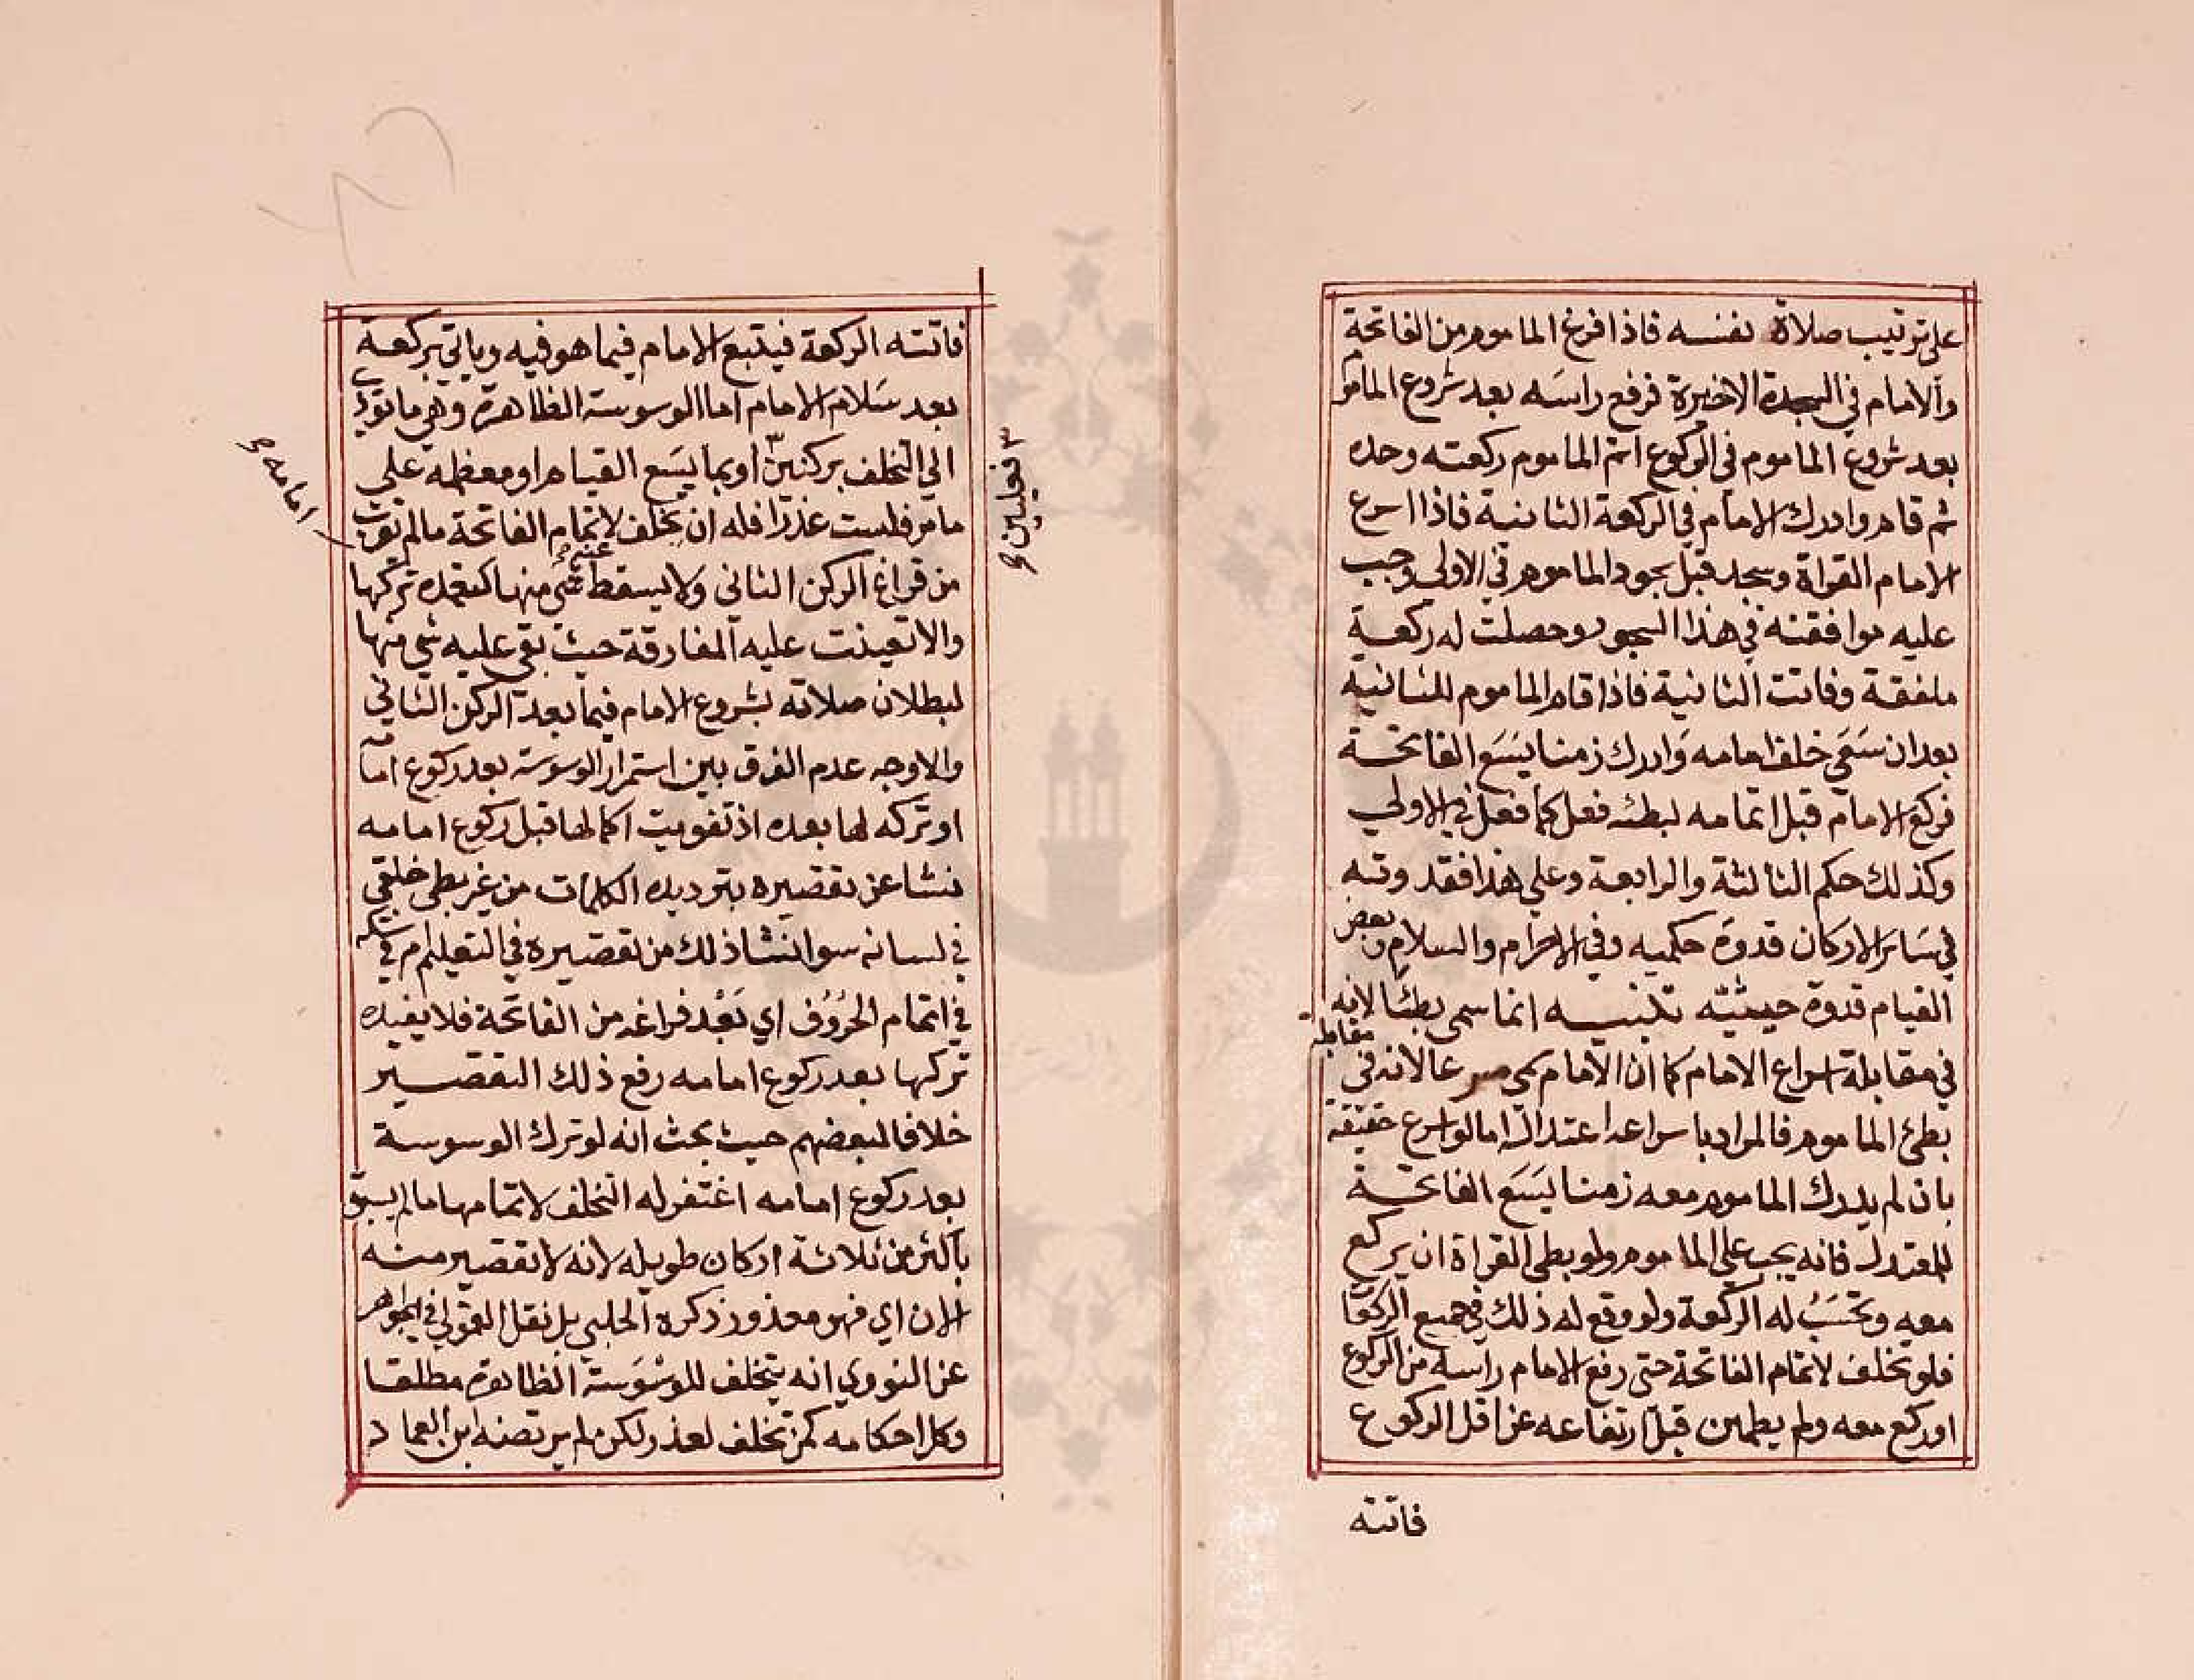 على ترتيب صلاة نفسه فاذا فرغ الماموم من الفاتحة
والامام في السجدة الاخيرة فرفع راسه بعد شروع المامو
بعد شروع الماموم في الركوع اتم الماموم ركعته وحده
ثم قام وادرك الامام في الركعة الثانية فاذا اسرع
الامام القراة وسجد قبل سجود الماموم في الاولى وجب
عليه موافقته في هذا السجود وحصلت له ركعة
ملفقة وفاتت الثانية فاذا قام الماموم للثانية
بعد ان سعى خلف امامه وادرك زمنا يسع الفاتحة
فركع الامام قبل اتمامه لبطئه فعل كما فعل في الاولي
وكذلك حكم الثالثة والرابعة وعلي هذا فقدوته
في سائر الاركان قدوة حكميه وفي الاحرام والسلام وبعض
القيام قدوة حسيه تنبيه انما سمي بطئا لانه
في مقابلة اسراع الامام كما ان الامام سمي مسرعا لانه في مقابلة
بطئ الماموم فالمراد باسراعه اعتداله اما لو اسرع حقيقة
بان لم يدرك الماموم معه زمنا يسع الفاتحة
للمعتدل فانه يجب على الماموم ولو بطي القراة ان يركع
معه وتحسب له الركعة ولو وقع له ذلك في جميع الركعا
فلو تخلف لاتمام الفاتحة حتى رفع الامام راسه من الركوع
او ركع معه ولم يطمين قبل ارتفاعه عن اقل الركوع
فاتته
فاتته الركعة فيتبع الامام فيما هو فيه وياتي بركعة
بعد سلام الامام اما الوسوسة الظاهرة وهي ما تودي
الي التخلف بركنين او بما يسع القيام او معظمه علي
٣ فعليين صح
ما مر فليست عذرا فله ان يتخلف لاتمام الفاتحة مالم تقرب
امامه صح
من فراغ الركن الثاني ولا يسقط عنه شي منها كتعمده تركها
والا تعينت عليه المفارقة حيث بقي عليه شي منها
لبطلان صلاته بشروع الامام فيما بعد الركن الثاني
والاوجه عدم الفرق بين استمرار الوسوسة بعد ركوع امامه
او تركه لها بعده اذ تفويت اكمالها قبل ركوع امامه
نشا عن تقصيره بترديده الكلمات من غير بطي خلقي
في لسانه سوا نشا ذلك من تقصيره في التعلم ام في شكه
في اتمام الحروف اي بعد فراغه من الفاتحة فلا يفيده
تركها بعد ركوع امامه رفع ذلك التقصير
خلافا لبعضهم حيث بحث انه لو ترك الوسوسة
بعد ركوع امامه اغتفر له التخلف لاتمامها مالم يسبق
باكثر من ثلاثة اركان طويله لانه لا تقصير منه
الان اي فهو معذور ذكره الحلبي بل نقل القمولي في الجواهر
عن النووي انه يتخلف للوسوسة الظاهرة مطلقا
وكل احكامه كمن تخلف لعذر لكن لم يرتضه ابن العماد